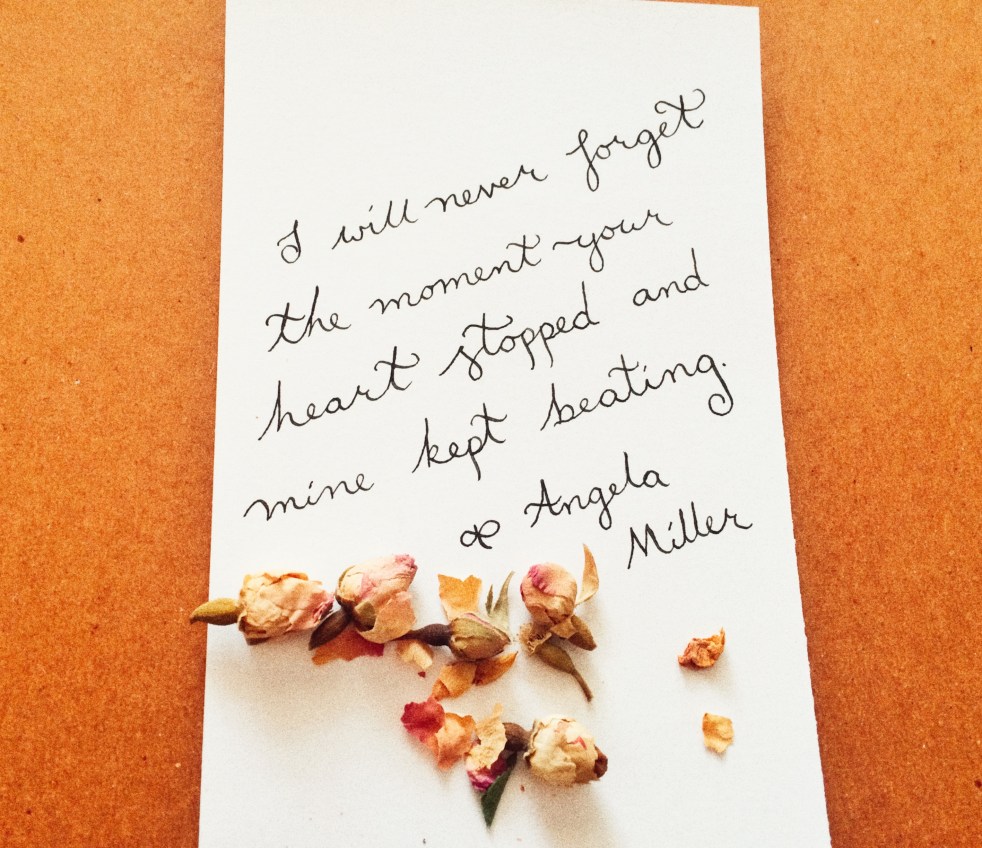 I will never forget
the moment your
heart stopped and
mine kept beating.
Angela
Miller